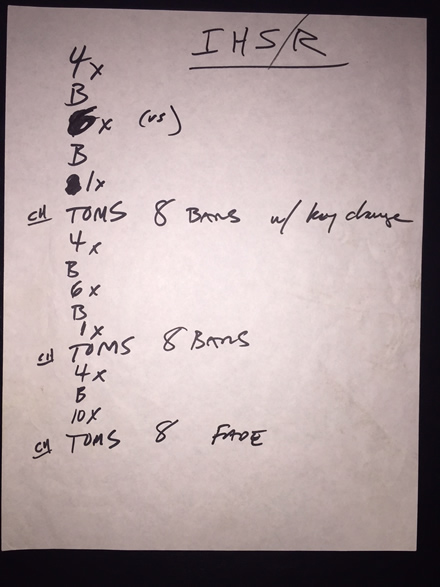 IHS/R
4x
B
6x (vs)
B
1x
CH TOMS 8 BARS w/ key change
4x
B
6x
B
1x
CH TOMS 8 BARS
4x
B
10x
CH TOMS 8 FADE